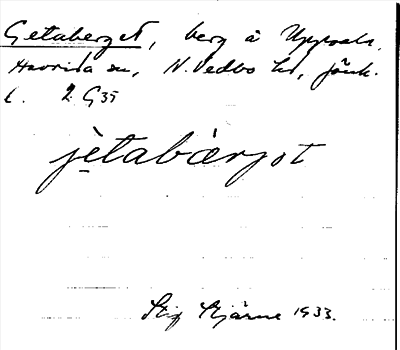 Getaberget, berg å Uppsala,
Haurida sn, N. Vedbo hd, Jönk.
l. 2 G35
jètabærjot
Stig Stjärne 1933.